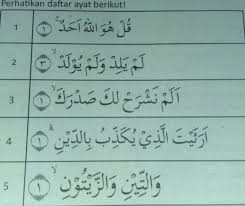 Perhatikan daftar ayat berikut!
1 قُلْ هُوَ اللّٰهُ اَحَدٌۚ ١
2 لَمْ يَلِدْ وَلَمْ يُوْلَدْۙ ٣
3 اَلَمْ نَشْرَحْ لَكَ صَدْرَكَۙ ١
4 اَرَءَيْتَ الَّذِيْ يُكَذِّبُ بِالدِّيْنِۗ ١
5 وَالتِّيْنِ وَالزَّيْتُوْنِۙ ١